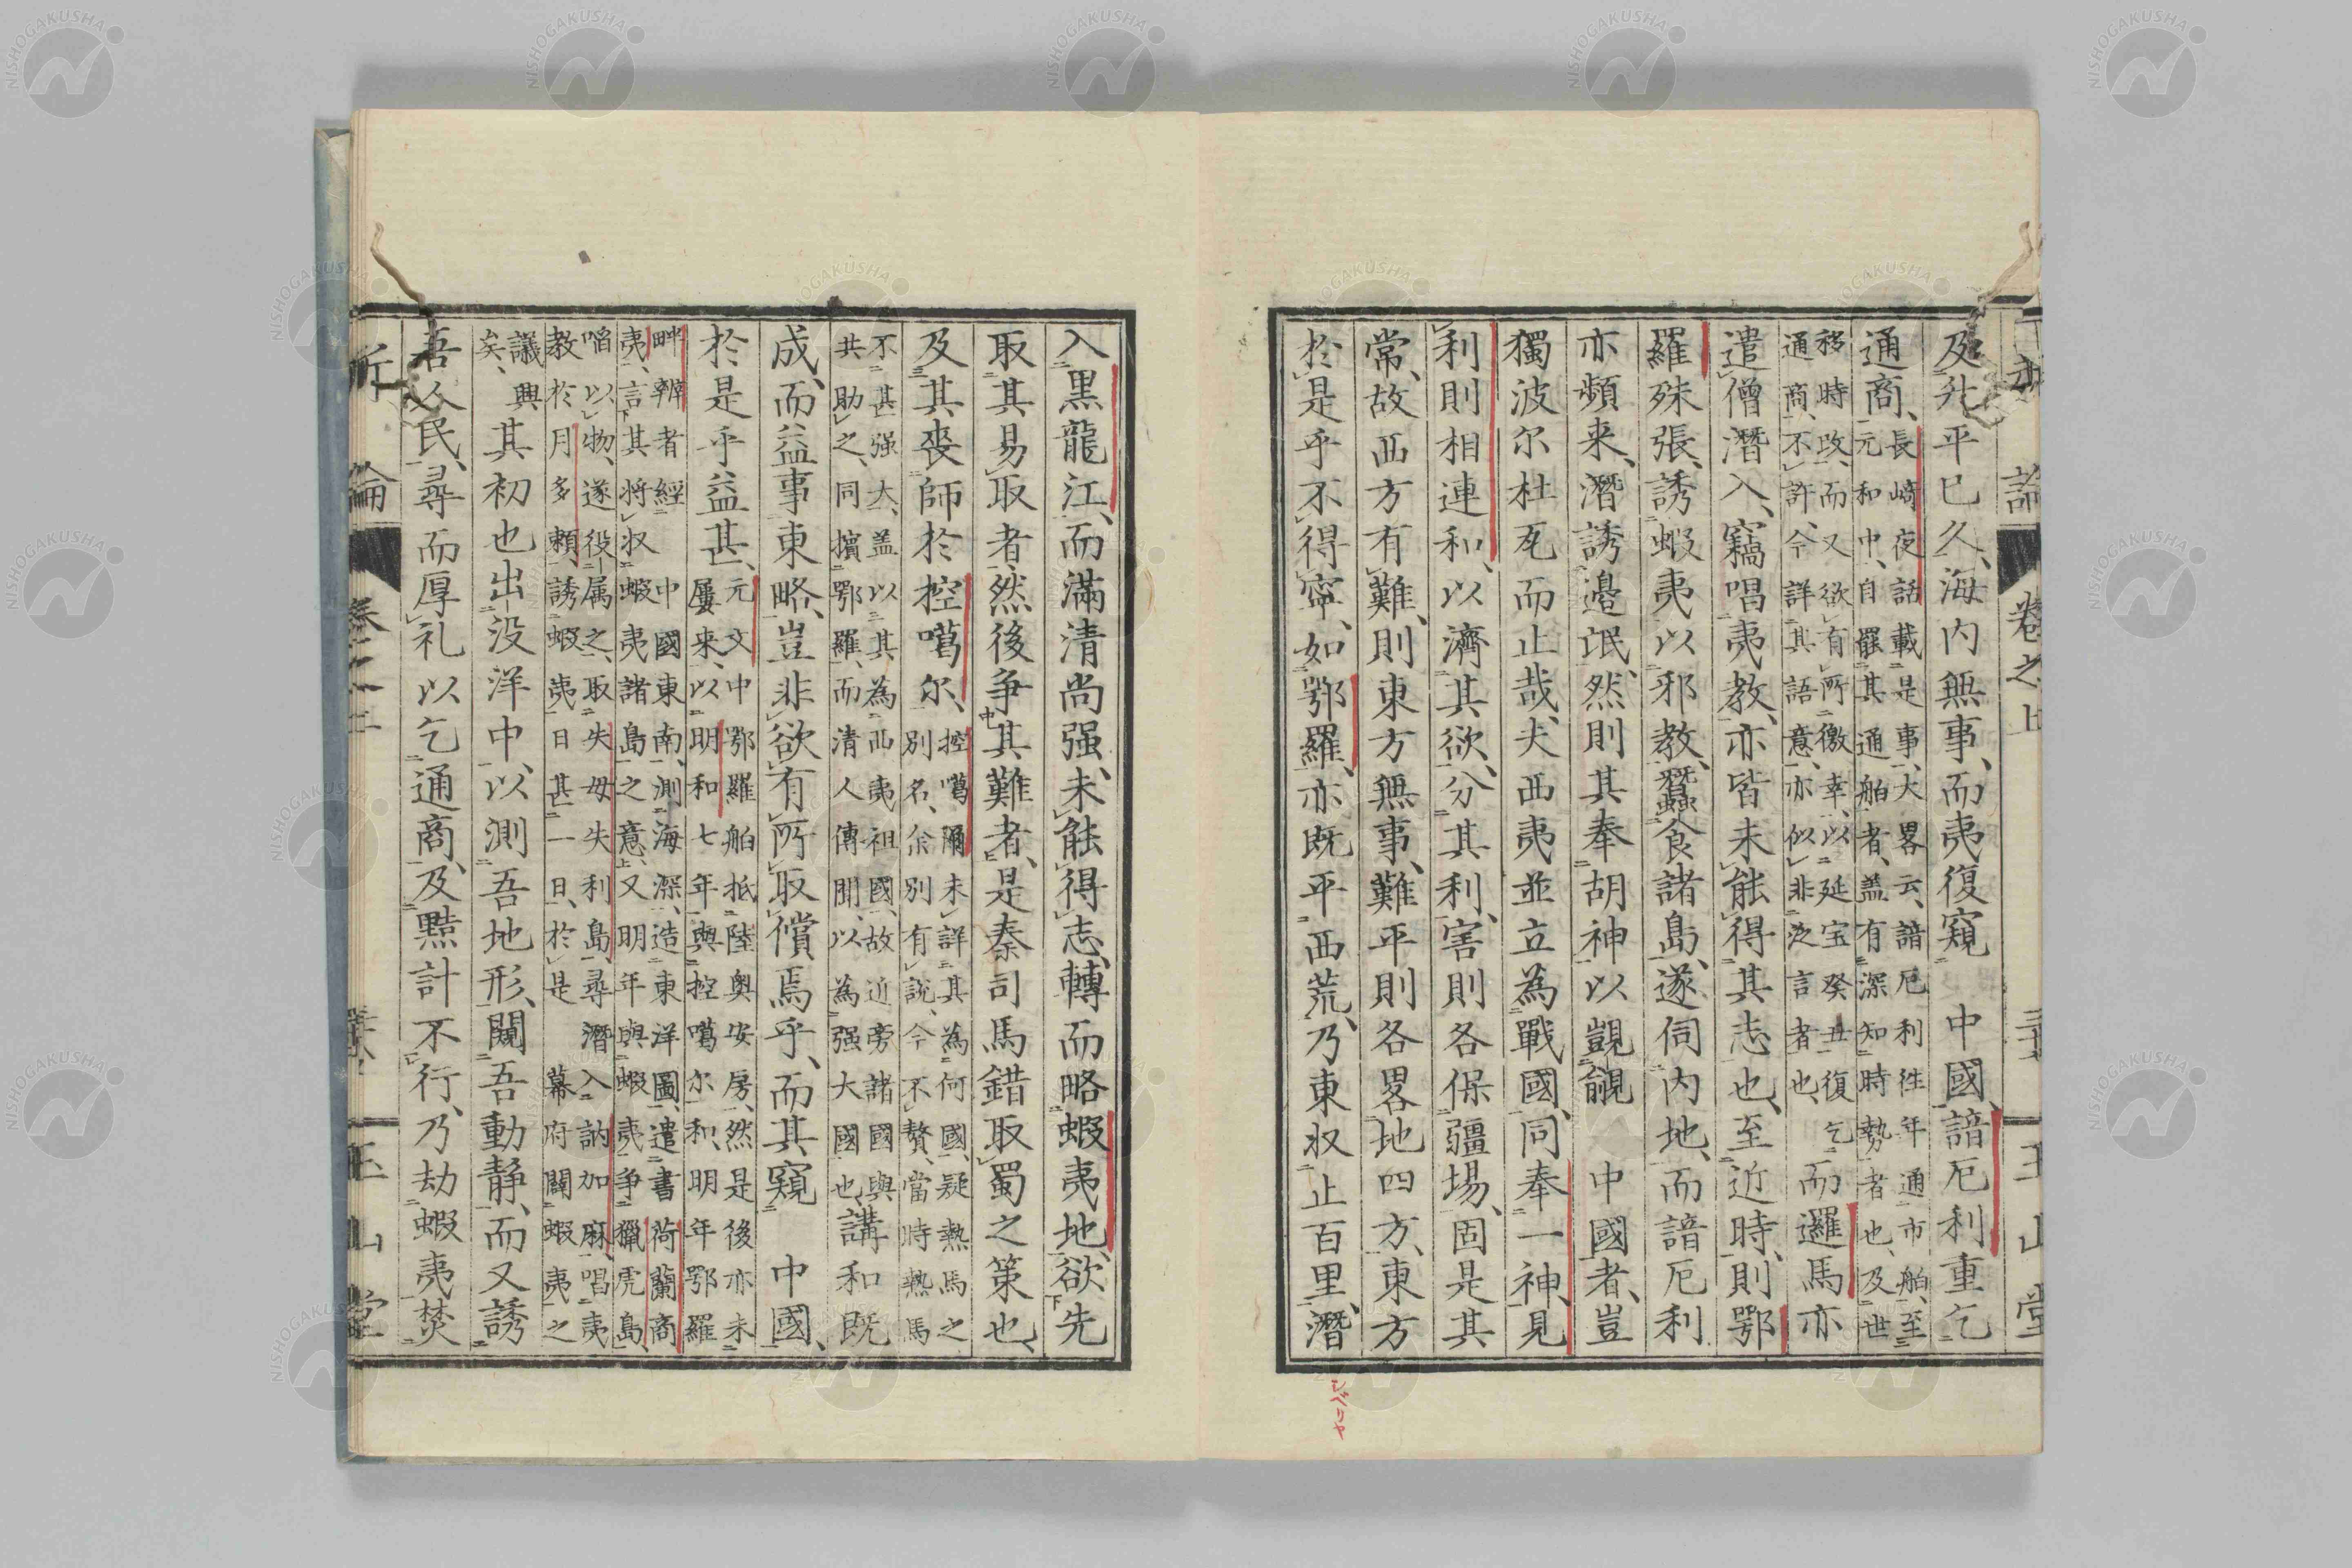 及升平已久、海内無事、而夷復窺　中國、諳厄利重乞
通商、長崎夜話載是事、大畧云、諳厄利往年通市舶、至
元和中、自罷其通舶者、盖有深知時勢者也、及世
移時改、而又欲有所徼幸、以延宝癸丑復乞
通商、不許、今詳其語意、亦似非泛言者也、而邏馬亦
遣僧潛入、竊唱夷教、亦皆未能得其志也、至近時、則鄂
羅殊張、誘蝦夷以邪教、蠶食諸島、遂伺内地、而諳厄利
亦頻来、潛誘邉氓、然則其奉胡神以覬覦　中國者、豈
獨波尔杜瓦而止哉、夫西夷並立為戰國、同奉一神、見
利則相連和、以濟其欲、分其利、害則各保疆場、固是其
常、故西方有難、則東方無事、難平則各畧地四方、東方
於是乎不得寧、如鄂羅、亦既平西荒、乃東収止百里、潛
シベリヤ
入黒龍江、而滿清尚强、未能得志、轉而略蝦夷地、欲先
取其易取者、然後争其難者、是秦司馬錯取蜀之策也、
及其喪師於控噶尓、控噶爾未詳其為何國、疑熱馬之
別名、尒別有説、今不贅、當時熱馬
不甚强大、盖以其為西夷祖國、故近旁諸國與
共助之、同擯鄂羅、而清人傳聞、以為强大國也、講和既
成、而益事東略、豈非欲有所取償焉乎、而其窺　中國、
於是乎益甚、元文中鄂羅舶抵陸奥安房、然是後亦未
屢来、以明和七年與控噶尓和、明年鄂羅
畔辨者經　中國東南、測海深、造東洋圖、遣書荷蘭商
夷、言其将収蝦夷諸島之意、又明年與蝦夷争獵虎島、
啗以物、遂役属之、取失母失利島、尋潛入訥加麻、唱夷
教於月多頼、誘蝦夷日甚一日、於是　幕府闢蝦夷之
議興
矣、其初也出没洋中、以測吾地形、闞吾動靜、而又誘
吾人民、尋而厚礼以乞通商、及黠計不行、乃劫蝦夷焚
論　卷之上　玉山堂
新論　玉山堂
NISHOGAKUSHA